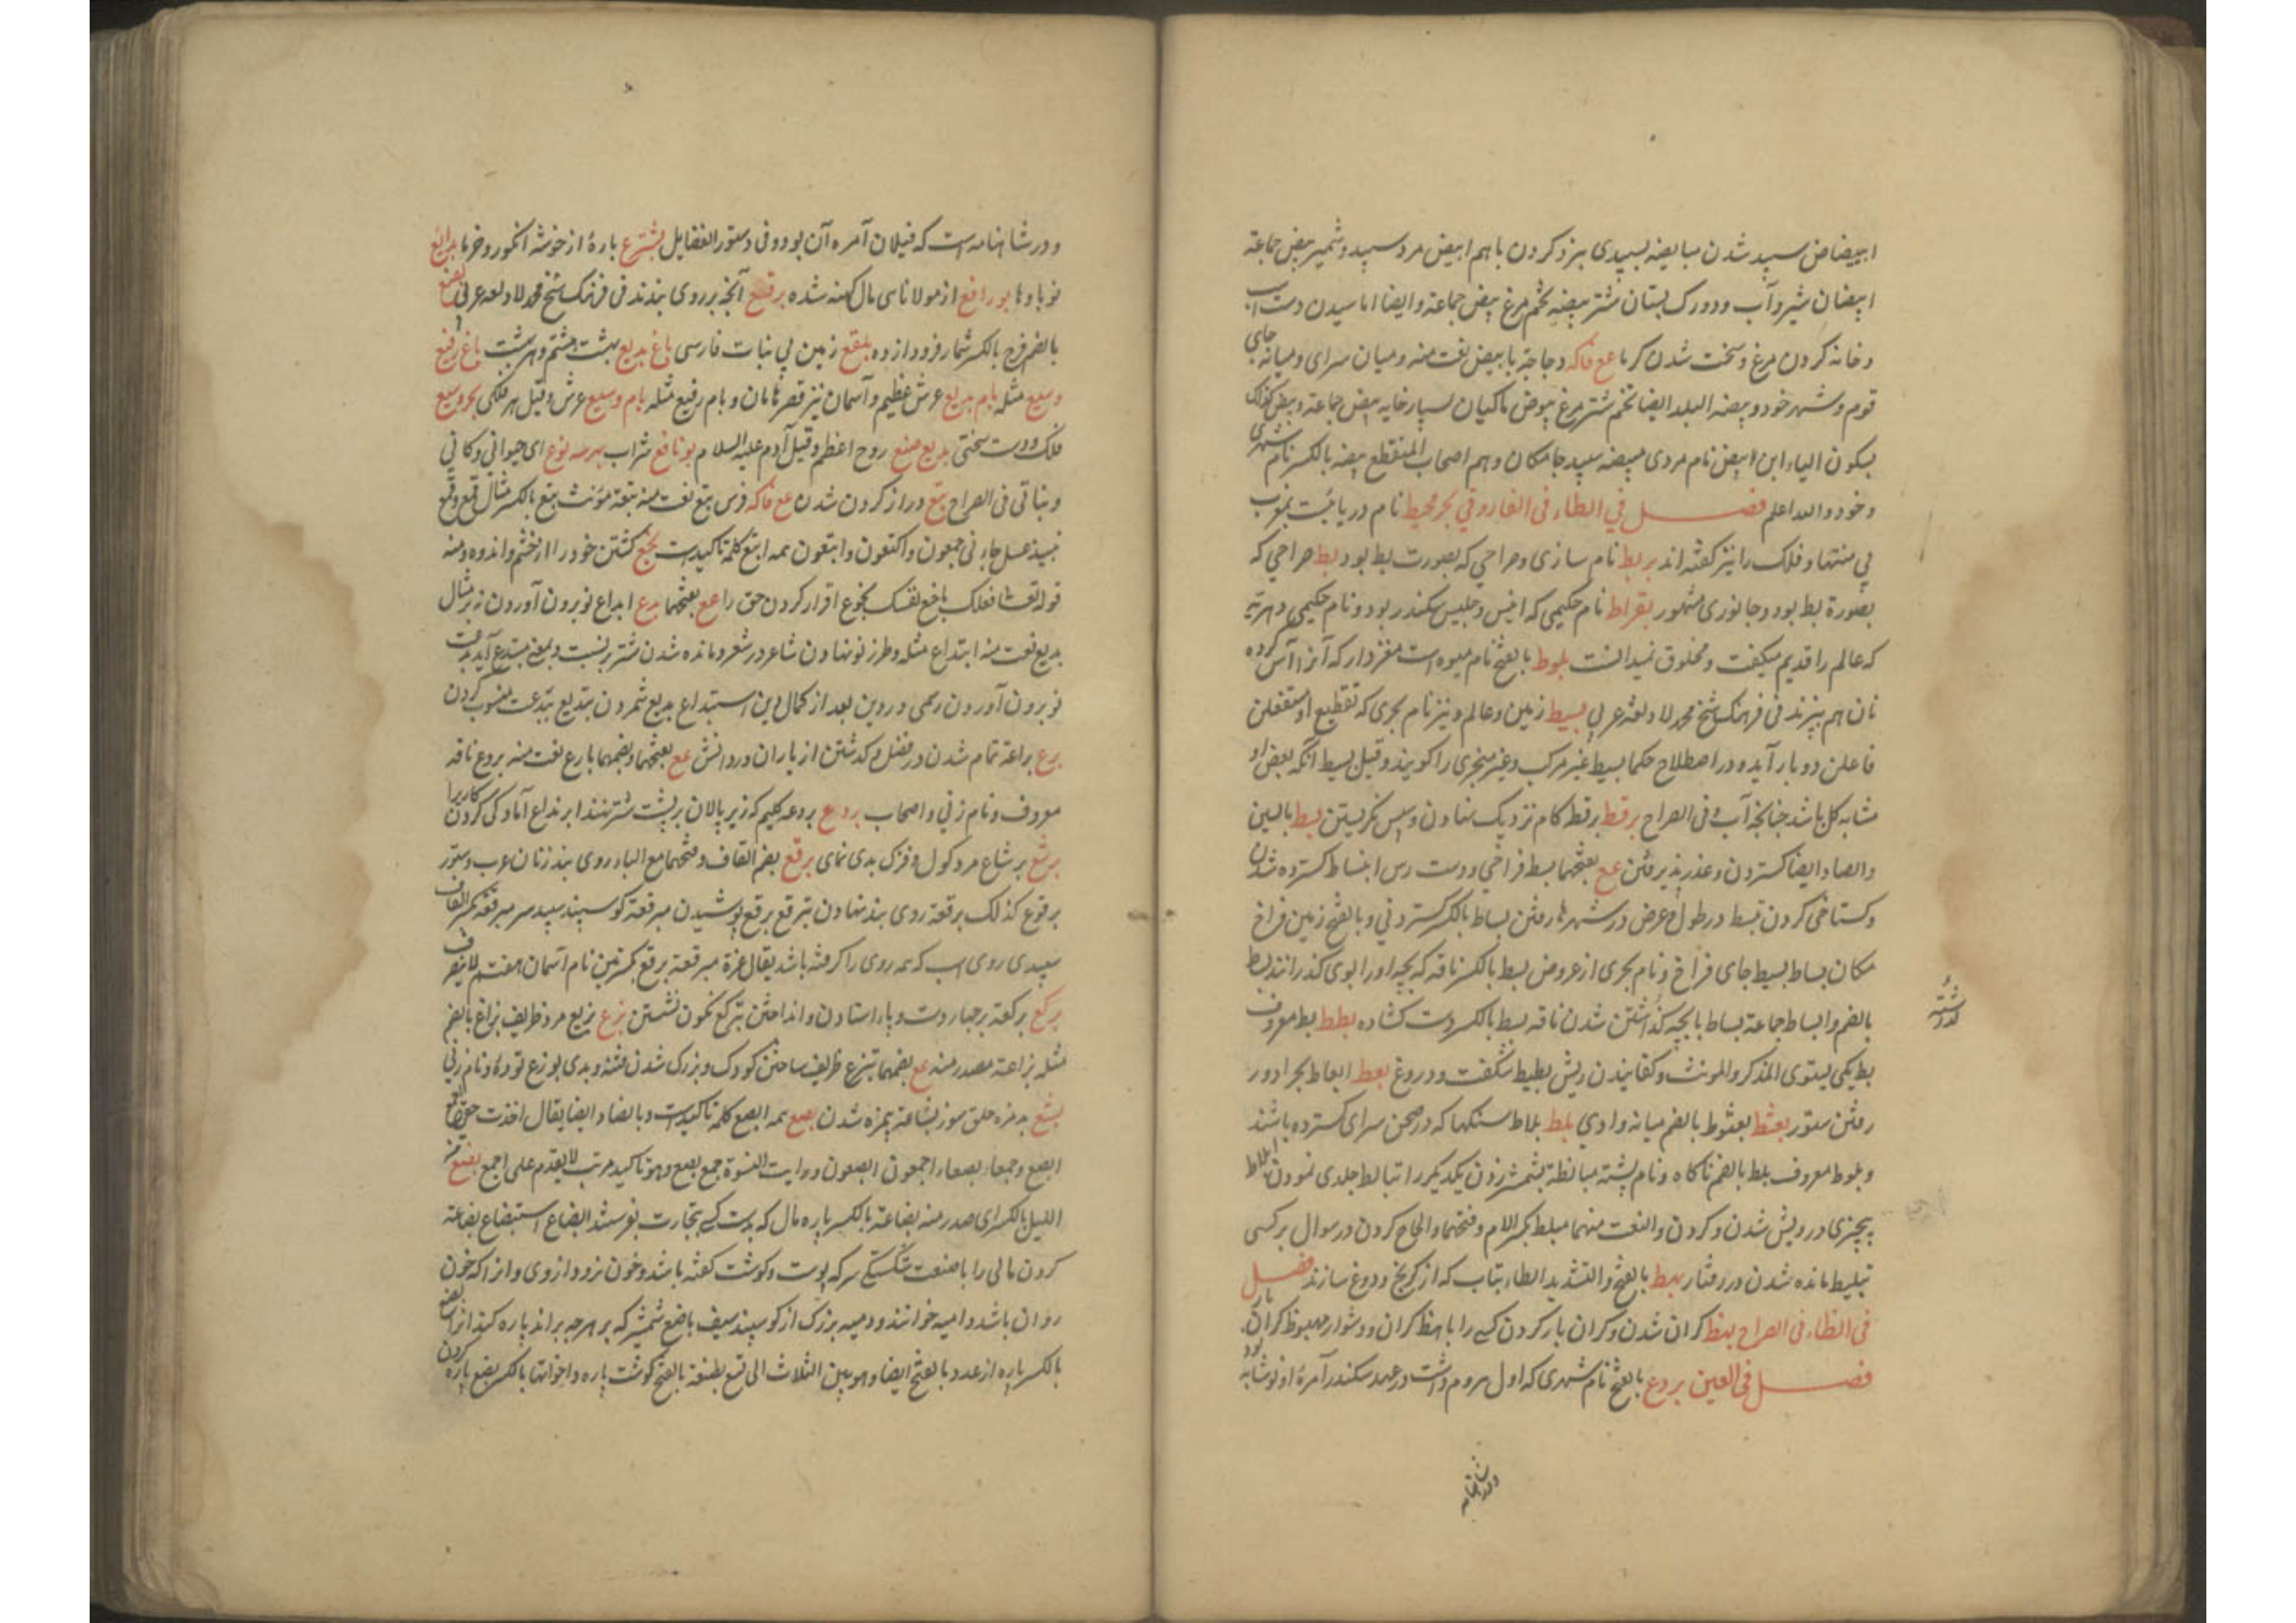 ابیضاض سپید شدن مبایضه بسپیدی نبرد کردن با هم ابیض مرد سپید و شمیر بیض جماعة
ابیضان شیر و آب و دو رک بستان شتر بیضه تخم مرغ بیض جماعة و ایضا اماسیدن دست اسب
و خانه کردن مرغ و سخت شدن کرما مع فاکه دجاجة بایض نعت منه و میان سرای و میانه جای
قوم و شهر خود و بیضة البلد ایضا تخم شتر مرغ بیوض ماکیان بسیار خایه بیض جماعة و بیض کذلک
بسکون الیاء ابن ابیض نام مردی مبیضه سپید جامکان و هم اصحاب المقنع بیضه بالکسر نام شهری
و خود والله اعلم فصل فی الطاء فی الفاروقی بحر محیط نام دریائیست بمغرب
بی منتها و فلک را نیز گفته اند بربط نام سازی و صراحی که بصورت بط بود بط صراحی که
بصورة بط بود و جانوری مشهور بقراط نام حکیمی که انیس و جلیس سکندر بود و نام حکیمی دهریه
که عالم را قدیم میگفت و مخلوق نمیدانست بلوط بالفتح نام میوه است مغزدار که آنرا آس کرده
نان هم پزند فی فرهنک شیخ محمد لاد لغة عربی بسیط زمین و عالم و نیز نام بحری که تقطیع او مستفعلن
فاعلن دو بار آید و در اصطلاح حکما بسیط غیر مرکب و غیر متجزی را گویند و قیل بسیط آنکه بعض او
مشابه کل باشد چنانچه آب و فی الصراح برقط برقطه گام نزدیک نهادن و سپس نگریستن بسط بالسین
والصاد ایضا گستردن و عذر پذیرفتن مع بفتحها بسط فراخی و دست رس انبساط گسترده شدن
و گستاخی کردن تبسط در طول و عرض در شهرها رفتن بساط بالکسر گستردنی و بالفتح زمین فراخ
مکان بساط بسیط جای فراخ و نام بحری از عروض بسط بالکسر ناقه که بچه او را بوی گذرانند بسط
بالضم وابساط جماعة بساط با بچه گذاشتن شدن ناقه بسط بالکسر دست گشاده بطط بط معروف
گذاشته
بط یکی یستوی المذکر والمونث و کفانیدن ریش بطیط شگفت و دروغ بعط ابعاط بجرا دور
رفتن ستور بعثط بعثوط بالضم میانه وادی بلط بلاط سنکها که در صحن سرای گسترده باشند
و بلوط معروف بلط بالضم ناگاه و نام پشته مبالطه بشمشیر زدن یکدیگر را تبالط جلدی نمودن ابلاط
بیچیزی و درویش شدن و کردن والنعت منهما مبلط بکسر اللام و فتحها و الحاح کردن در سوال بر کسی
تبلیط مانده شدن در رفتار بهط بالفتح والتشدید الطاء بتاب که از برنج و دوغ سازند فصل
فی الظاء فی الصراح بهظ گران شدن و گران بار کردن کسی را باهظ گران و دشوار مبهوظ گران بار
فصل فی العین بردع بالفتح نام شهری که اول هروم داشت در عهد سکندر آمره او نوشابه بود
و در شاهنامه
و در شاهنامه است که فیلان آمره آن بود و فی دستور الفضایل بشترع پارهٔ از خوشه انگور و خرما بدایع
نوباوها بورافع از مولانا سی مال کهنه شده برقع آنچه بر روی بندند فی فرهنک شیخ محمد لاد لغة عربی بضع
بالضم فرج بالکسر شمار فرود از ده بلقع زمین بی نبات فارسی باغ بدیع بهشت هشتم و هر بهشت باغ رفیع
وسیع مثله بام بدیع عرش عظیم و آسمان نیز قصر شاهان و بام رفیع مثله بام وسیع عرش و قیل هر فلکی بحر وسیع
فلک و دست سخی بدیع صنع روح اعظم و قیل آدم علیه السلام بونافع شراب بهر سه نوع ای حیوانی و کانی
و نباتی فی الصراح بتع دراز گردن شدن مع فاکه فرس بتع نعت منه بتعة مؤنث بتع بالکسر مثال قمع و قمع
نبیذ عسل جاءنی جمعون واکتعون وابتعون همه ابتع کلمه تاکید است بخع کشتن خود را از خشم و اندوه و منه
قوله تعالی فلعلک باخع نفسک بخوع اقرار کردن حق را مع بفتحها بدع ابداع نو برون آوردن نه بر مثال
بدیع نعت منه ابتداع مثله و طرز نو نهادن شاعر در شعر و مانده شدن شتر بر نشست و بمعنی مبتدع آید بدعت
نو برون آوردن رسمی در دین بعد از کمال دین استبداع بدیع شمردن تبدیع ببدعت منسوب کردن
برع براعة تمام شدن در فضل و گذشتن از یاران در دانش مع بفتحها و بضمها بارع نعت منه بروع ناقه
معروف و نام زنی و اصحاب بردع بردعه گلیم که زیر پالان بر پشت شتر نهند ابرنداع آمادگی کردن کاریرا
برشع برشاع مرد گول و فزک بدی نمای برقع بضم القاف و فتحها مع الباء روی بند زنان عرب و ستور
برقوع کذلک برقعة روی بند نهادن تبرقع برقع پوشیدن مبرقعة گوسپند سپید سر مبرقعة بکسر القاف
سپیدی روی اسب که همه روی را گرفته باشد یقال غرة مبرقعة برقع بکسرتین نام آسمان هفتم لاینصرف
برکع برکعة بر چهار دست و پا استادن و انداختن تبرکع نگون نشستن بزع بزیع مرد ظریف بزاع بالضم
مثله بزاعة مصدر منه مع بضمهما تبزع ظریف ساختن کودک و بزرگ شدن فتنه و بدی بوزع تودهٔ و نام زنی
بشع بدمزه حلق سوز بشاعة بیمزه شدن بصع همه ابصع کلمه تاکید است و بالضاد ایضا یقال اخذت حقی اجمع
ابصع و جمعاء بصعاء اجمعون ابصعون و رایت النسوة جمع بصع و هو تاکید مرتب لا یقدم علی اجمع بضع منه
اللیل بالکسر ای صدر منه بضاعة بالکسر پاره مال که بدست کسی بتجارت بفرستند ابضاع استبضاع بضاعة
کردن مالی را باضعة شکستگی سر که پوست و گوشت کفته باشد و خون نرود از وی و انرا که خون
روان باشد دامیه خوانند و دمیه بزرگ از گوسپند سیف باضع شمشیر که بر هرچه براند پاره کند انرا بضع
بالکسر پاره از عدد بالفتح ایضا و هو بین الثلاث الی تسع بضعة بالفتح گوشت پاره و اخواتها بالکسر بضع پاره کردن